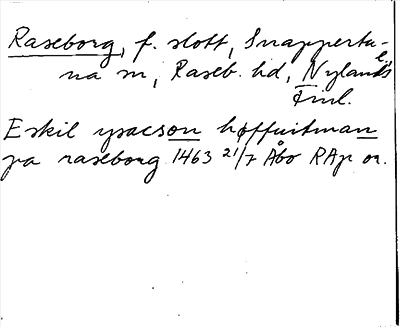 Raseborg, f. slott, Snappertu-
na sn, Raseb. hd, Nylands l.
Finl.
Eskil ysacson høffuitman
pa raseborg 1463 21/7 Åbo RAp or.